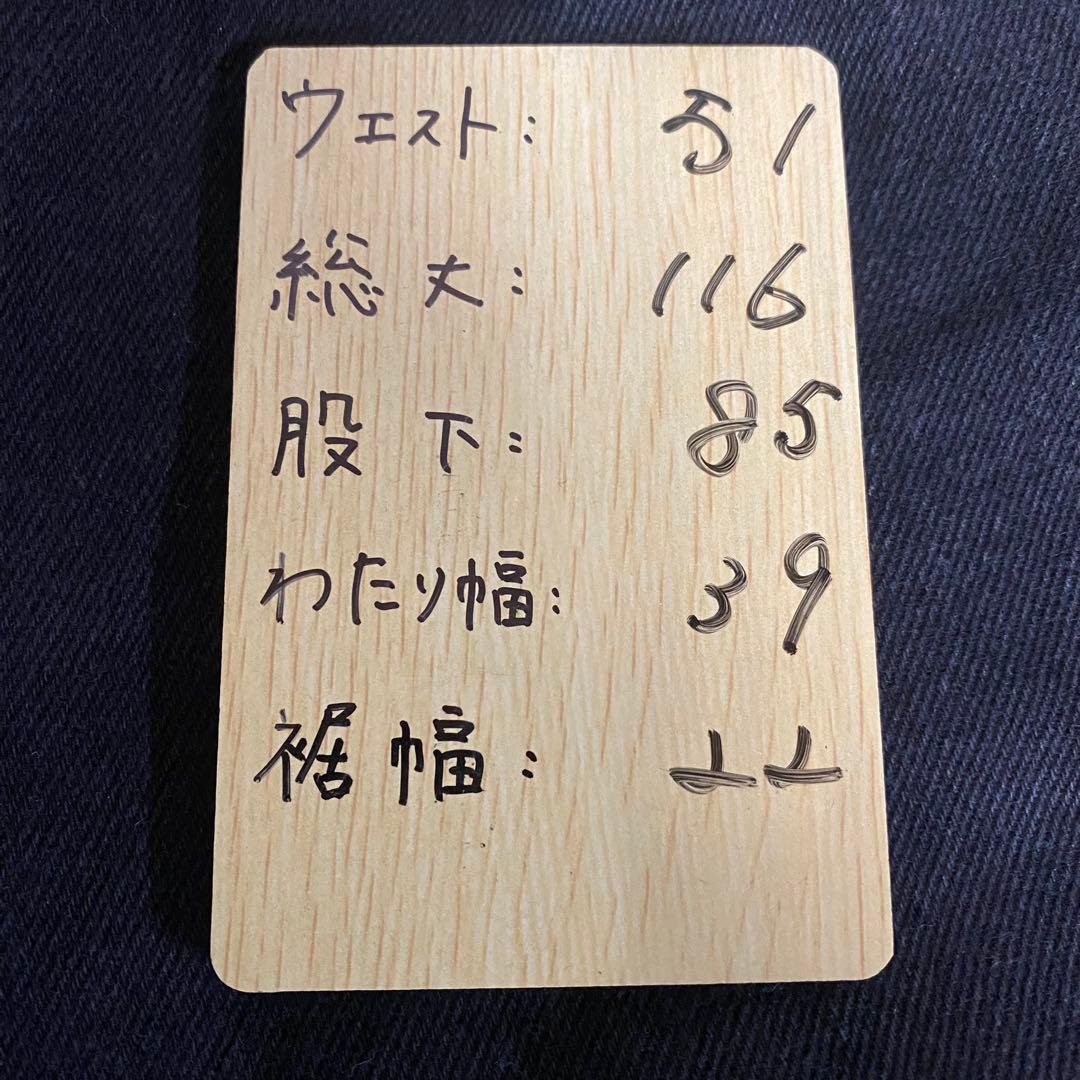 ウエスト: 51
総丈: 116
股下: 85
わたり幅: 39
裾幅: